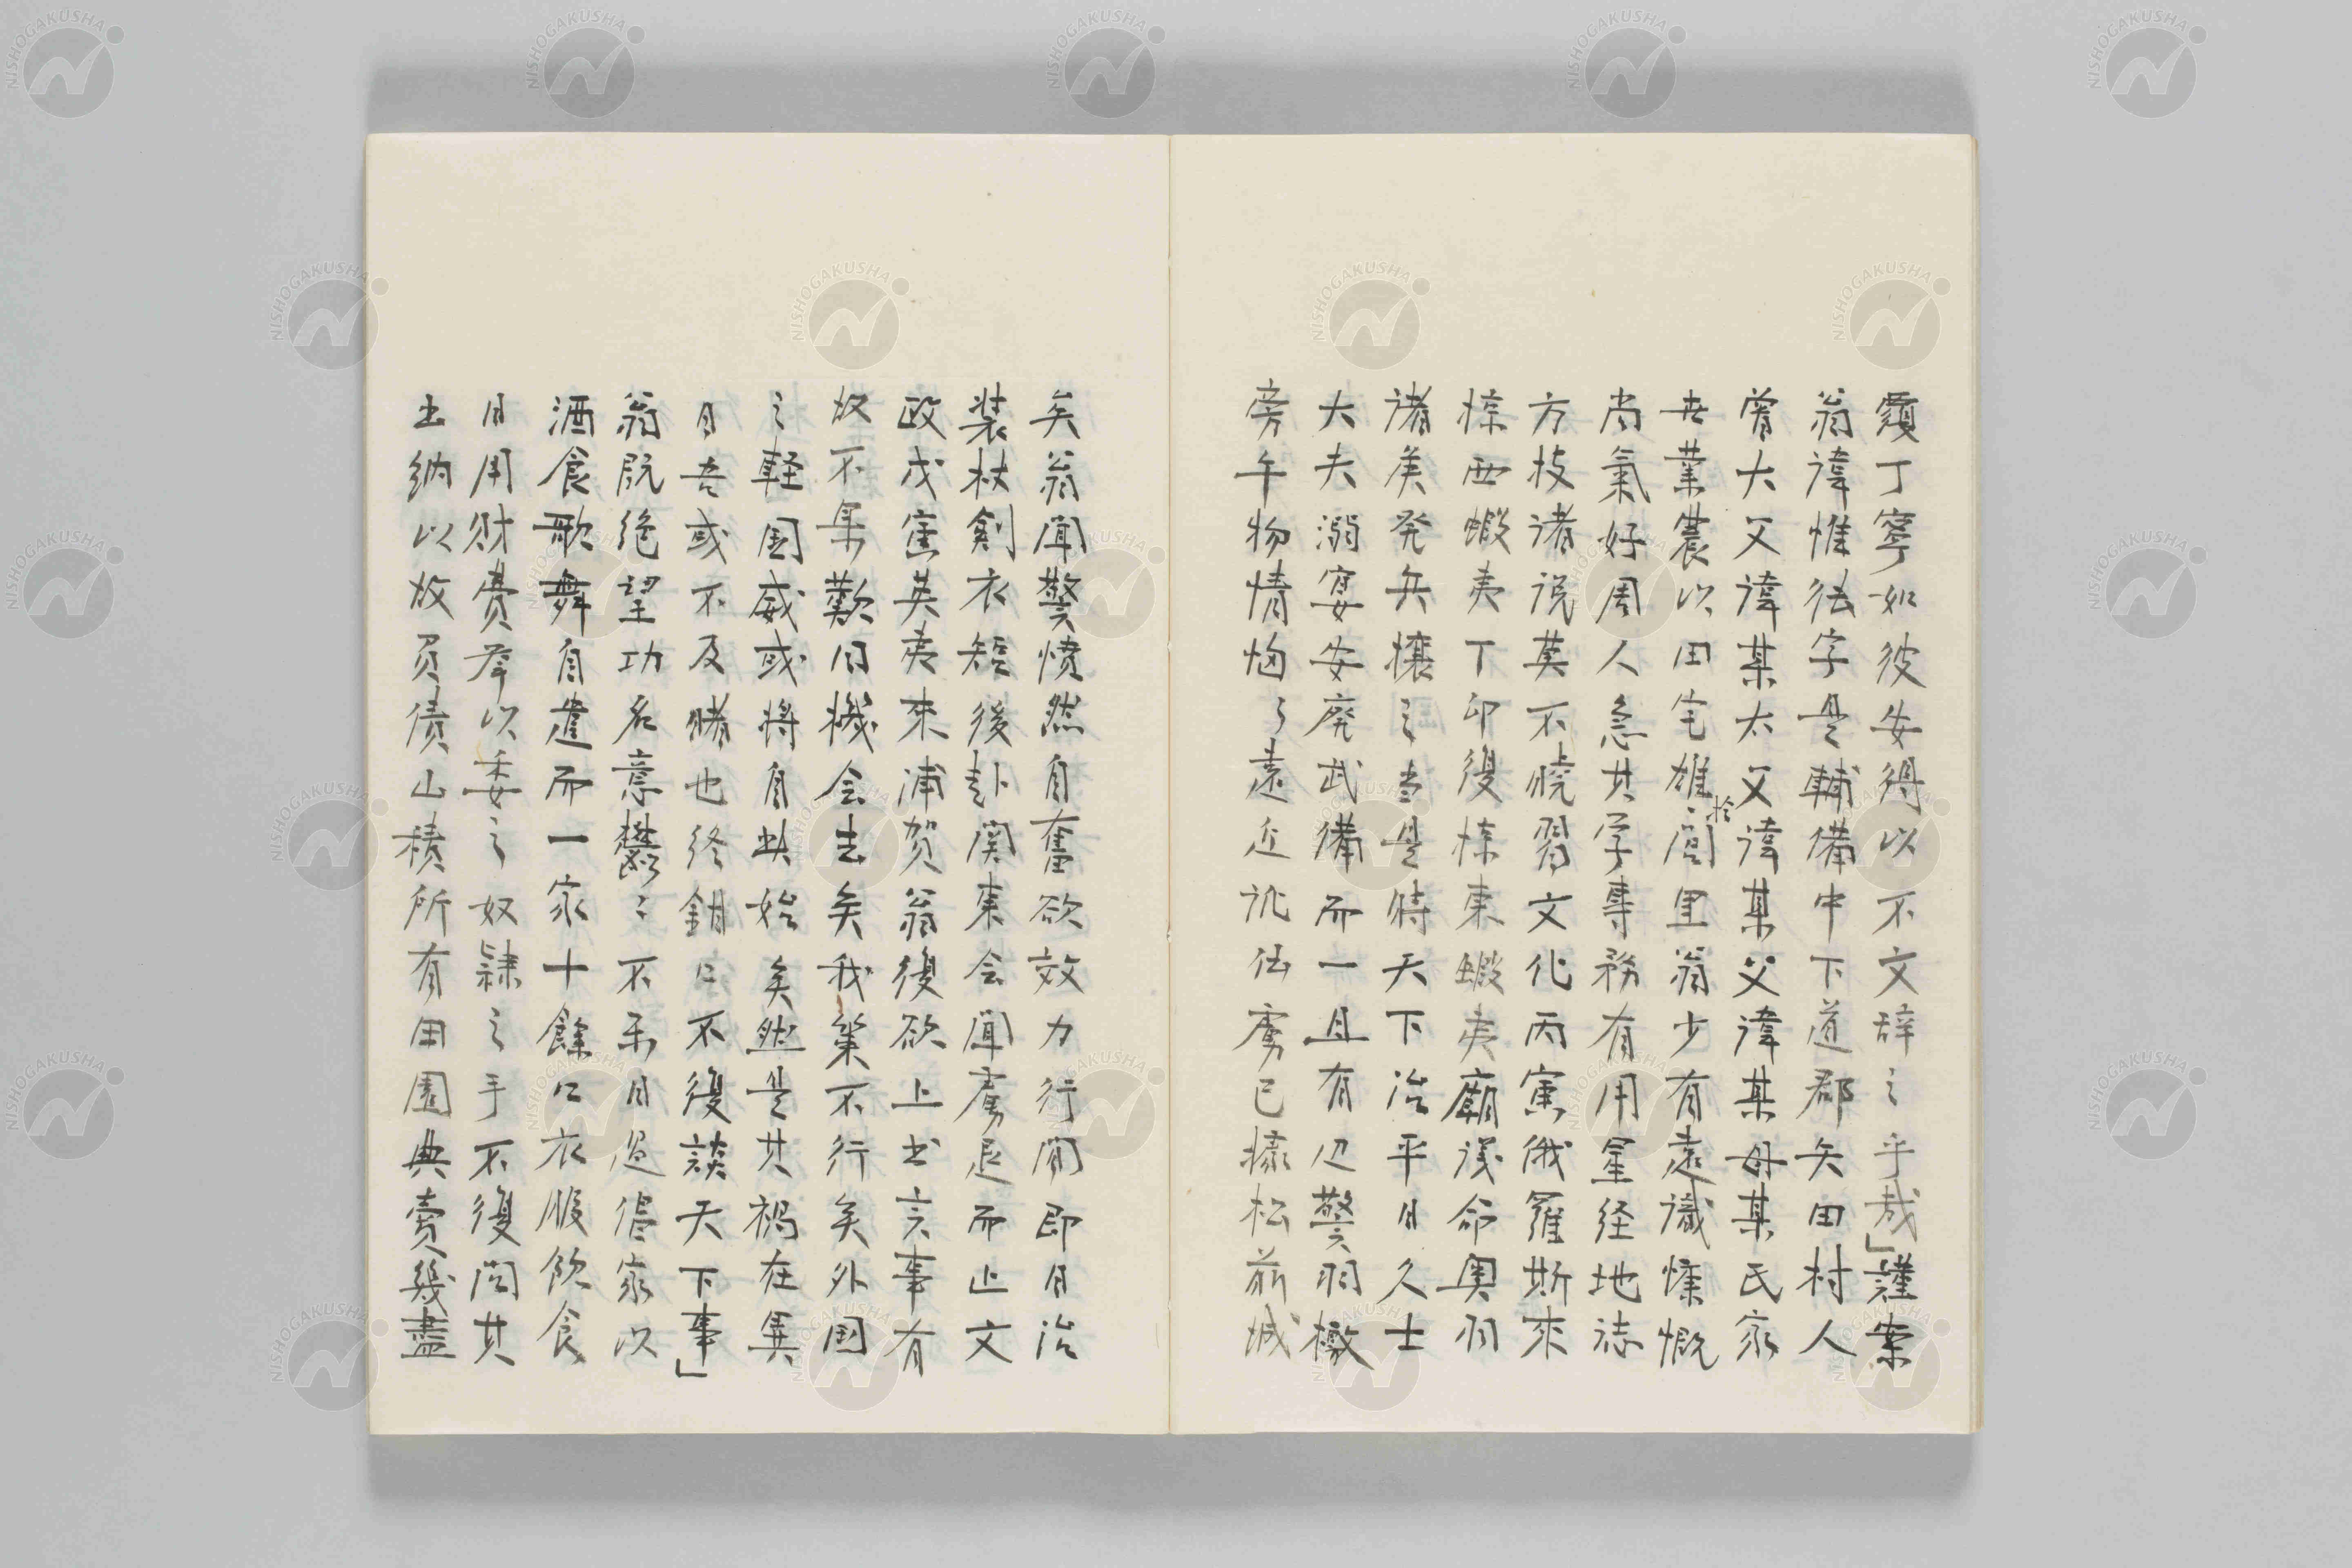 覆丁寧如彼安得以不文辞之乎哉」謹案
翁諱惟徳字是輔備中下道郡矢田村人
曽大父諱某太父諱某父諱某母某氏家
世業農以田宅雄於閭里翁少有遠識慷慨
尚氣好周人急其学専務有用星経地志
方技諸説莫不暁習文化丙寅俄羅斯来
掠西蝦夷丁卯復掠東蝦夷廟議命奥羽
諸侯発兵攘之当是時天下治平日久士
大夫溺宴安廃武備而一旦有辺警羽檄
旁午物情恟々遠近訛伝虜已據松前城
矣翁聞警憤然自奮欲效力行間即日治
装杖剣衣短後赴関東会聞虜退而止文
政戊寅英夷来浦賀翁復欲上書言事有
故不果歎曰機会去矣我策不行矣外国
之軽国威或将自此始矣然是其禍在異
日吾或不及睹也終鉗口不復談天下事」
翁既絶望功名意鬱々不楽日過倡家以
酒食歌舞自遣而一家十餘口衣服飲食
日用財費挙以委之奴隷之手不復問其
出納以故負債山積所有田園典賣幾盡
NISHOGAKUSHA